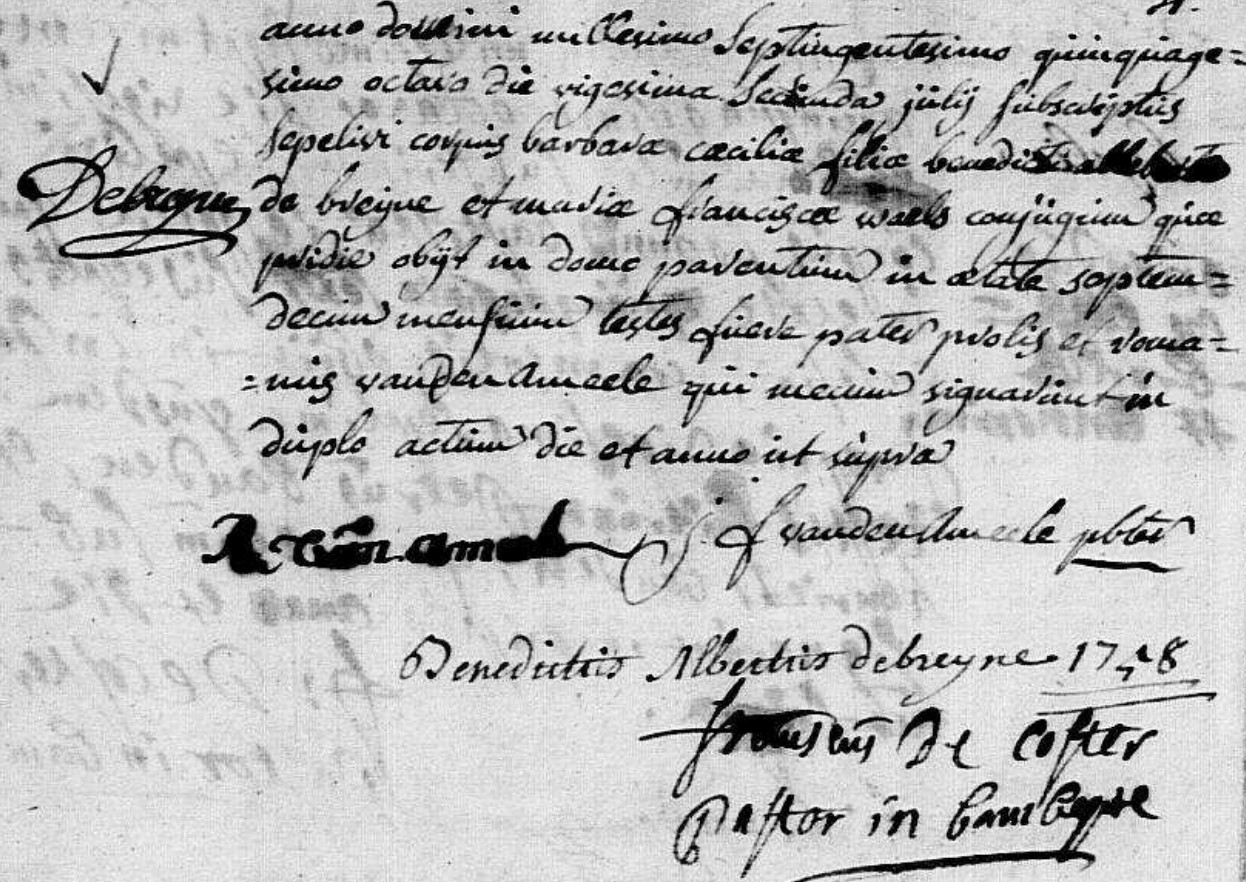 anno domini millesimo Septingentesimo quinquage=
simo octavo die vigesima Secunda julij subscriptus
Sepelivi corpus barbaræ cæciliæ filiæ benedicti alberti
Debreyne
de breyne et mariæ franciscæ waels conjugum quæ
pridie obijt in domo parentum in ætate septem=
decim mensium testes fuere pater prolis et roma=
=nus vanden Ameele qui mecum signarunt in
duplo actum die et anno ut supra
R. van ameel
J f vanden Ameele pbter
Benedictus Albertus debreyne 1758
de coster
Pastor in bambeque